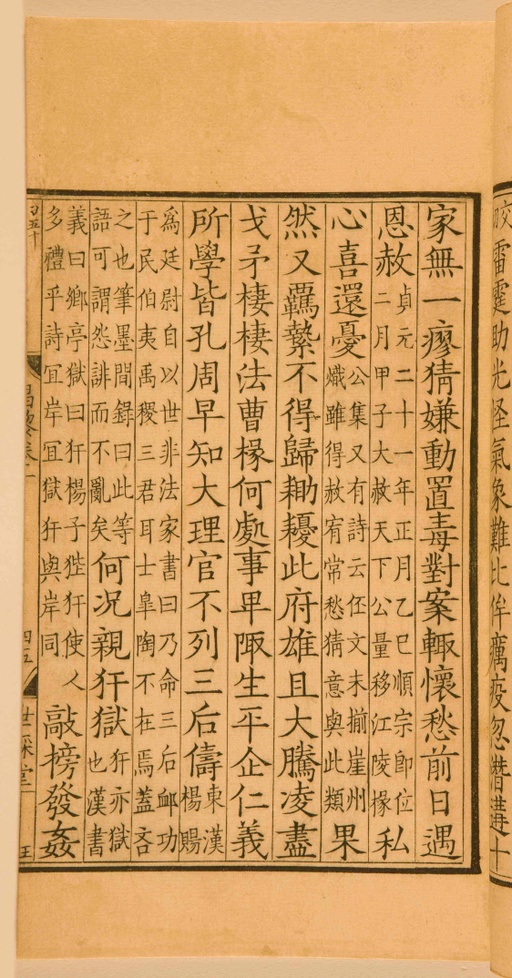 雷霆助光怪氣象難比侔癘疫忽潛遘十
家無一瘳猜嫌動置毒對案輒懷愁前日遇
恩赦貞元二十一年正月乙巳順宗卽位二月甲子大赦天下公量移江陵掾私
心喜還憂公集又有詩云伾文未揃崖州熾雖得赦宥常愁猜意與此類果
然又羈縶不得歸耡耰此府雄且大騰凌盡
戈矛棲棲法曹掾何處事卑陬生平企仁義
所學皆孔周早知大理官不列三后儔東漢楊賜
爲廷尉自以世非法家書曰乃命三后卹功于民伯夷禹稷三君耳士臯陶不在焉蓋吝
之也筆墨間錄曰此等語可謂怨誹而不亂矣何況親犴獄犴亦獄也漢書
義曰鄉亭獄曰犴楊子狴犴使人多禮乎詩冝岸冝獄犴與岸同敲榜發姦
五十
四五
世綵堂